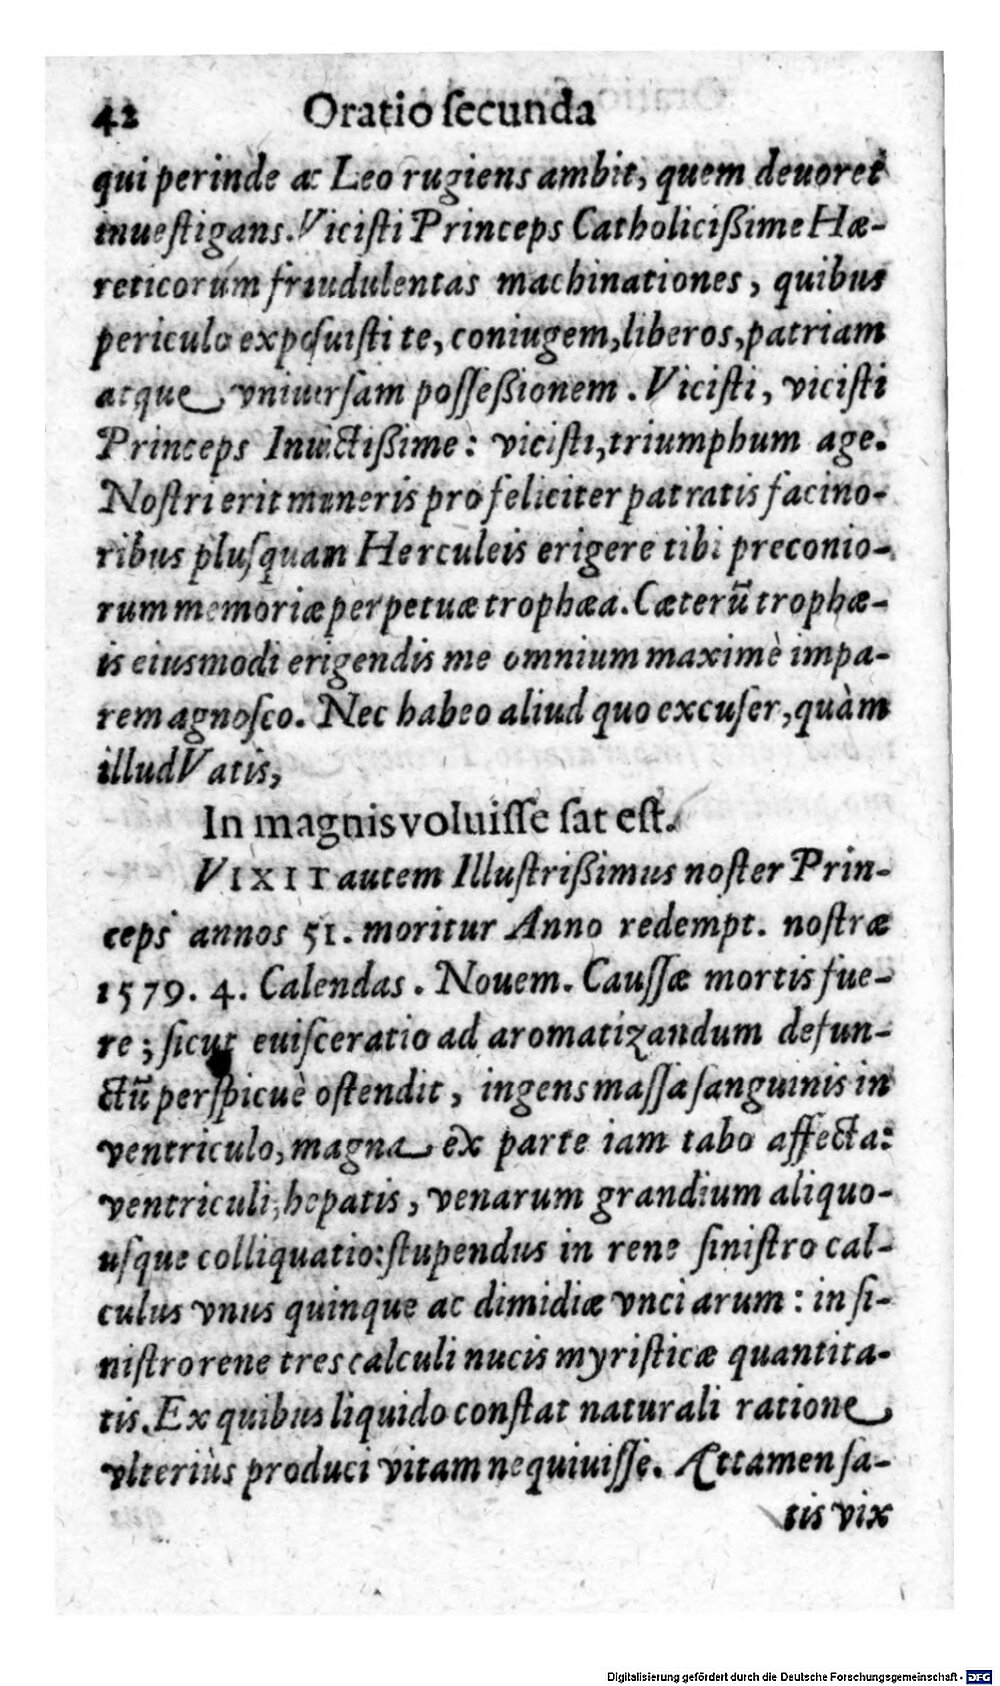 42 Oratio ſecunda
qui perinde ac Leo rugiens ambit, quem deuoret
inueſtigans. Viciſti Princeps Catholicißime Hæ-
reticorum fraudulentas machinationes, quibus
periculo expoſuiſti te, coniugem, liberos, patriam
atque vniuerſam poſſeßionem. Viciſti, viciſti
Princeps Inuictißime: viciſti, triumphum age.
Noſtri erit muneris pro feliciter patratis facino-
ribus pluſquam Herculeis erigere tibi preconio-
rum memoriæ perpetuæ trophæa. Cæterũ trophæ-
is eiusmodi erigendis me omnium maximè impa-
rem agnoſco. Nec habeo aliud quo excuſer, quàm
illud Vatis,
In magnis voluiſſe ſat eſt.
VIXIT autem Illuſtrißimus noſter Prin-
ceps annos 51. moritur Anno redempt. noſtræ
1579. 4. Calendas. Nouem. Cauſſæ mortis fue-
re; ſicut euiſceratio ad aromatizandum defun-
ctũ perſpicuè oſtendit, ingens maſſa ſanguinis in
ventriculo, magna ex parte iam tabo affecta:
ventriculi, hepatis, venarum grandium aliquo-
uſque colliquatio: ſtupendus in rene ſiniſtro cal-
culus vnus quinque ac dimidiæ vnciarum: in ſi-
niſtro rene tres calculi nucis myriſticæ quantita-
tis. Ex quibus liquido conſtat naturali ratione
vlteriùs produci vitam nequiuiſſe. Attamen ſa-
tis vix
Digitalisierung gefördert durch die Deutsche Forschungsgemeinschaft - DFG